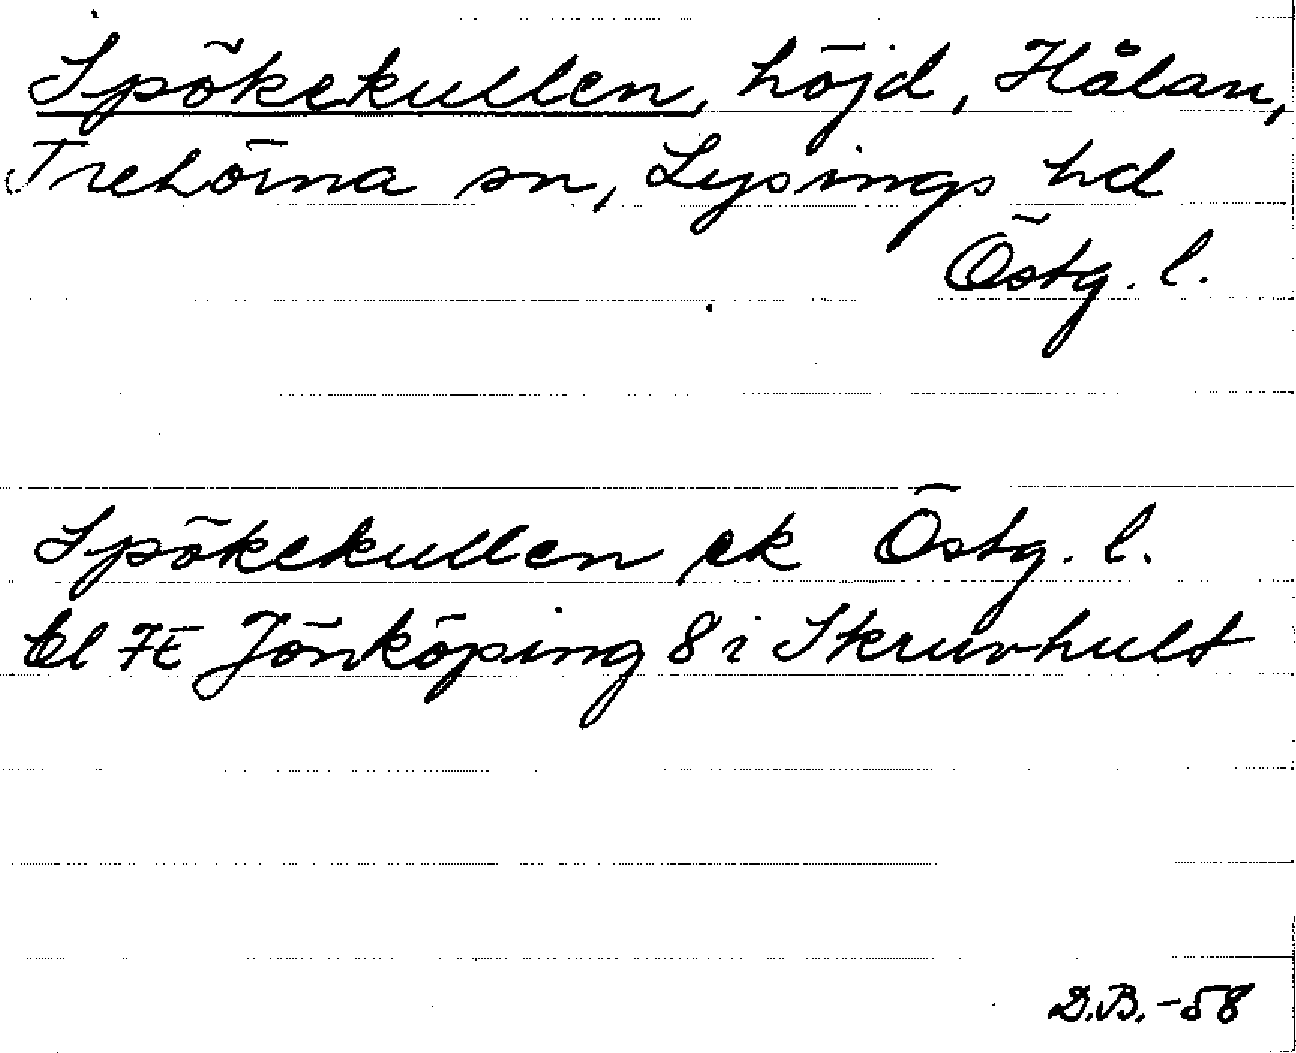 Spökekullen, höjd, Hålan,
Trehörna sn, Lysings hd
Östg. l.
Spökekullen ek Östg. l.
bl 7E Jönköping 8 i Skruvhult
D.B. -58